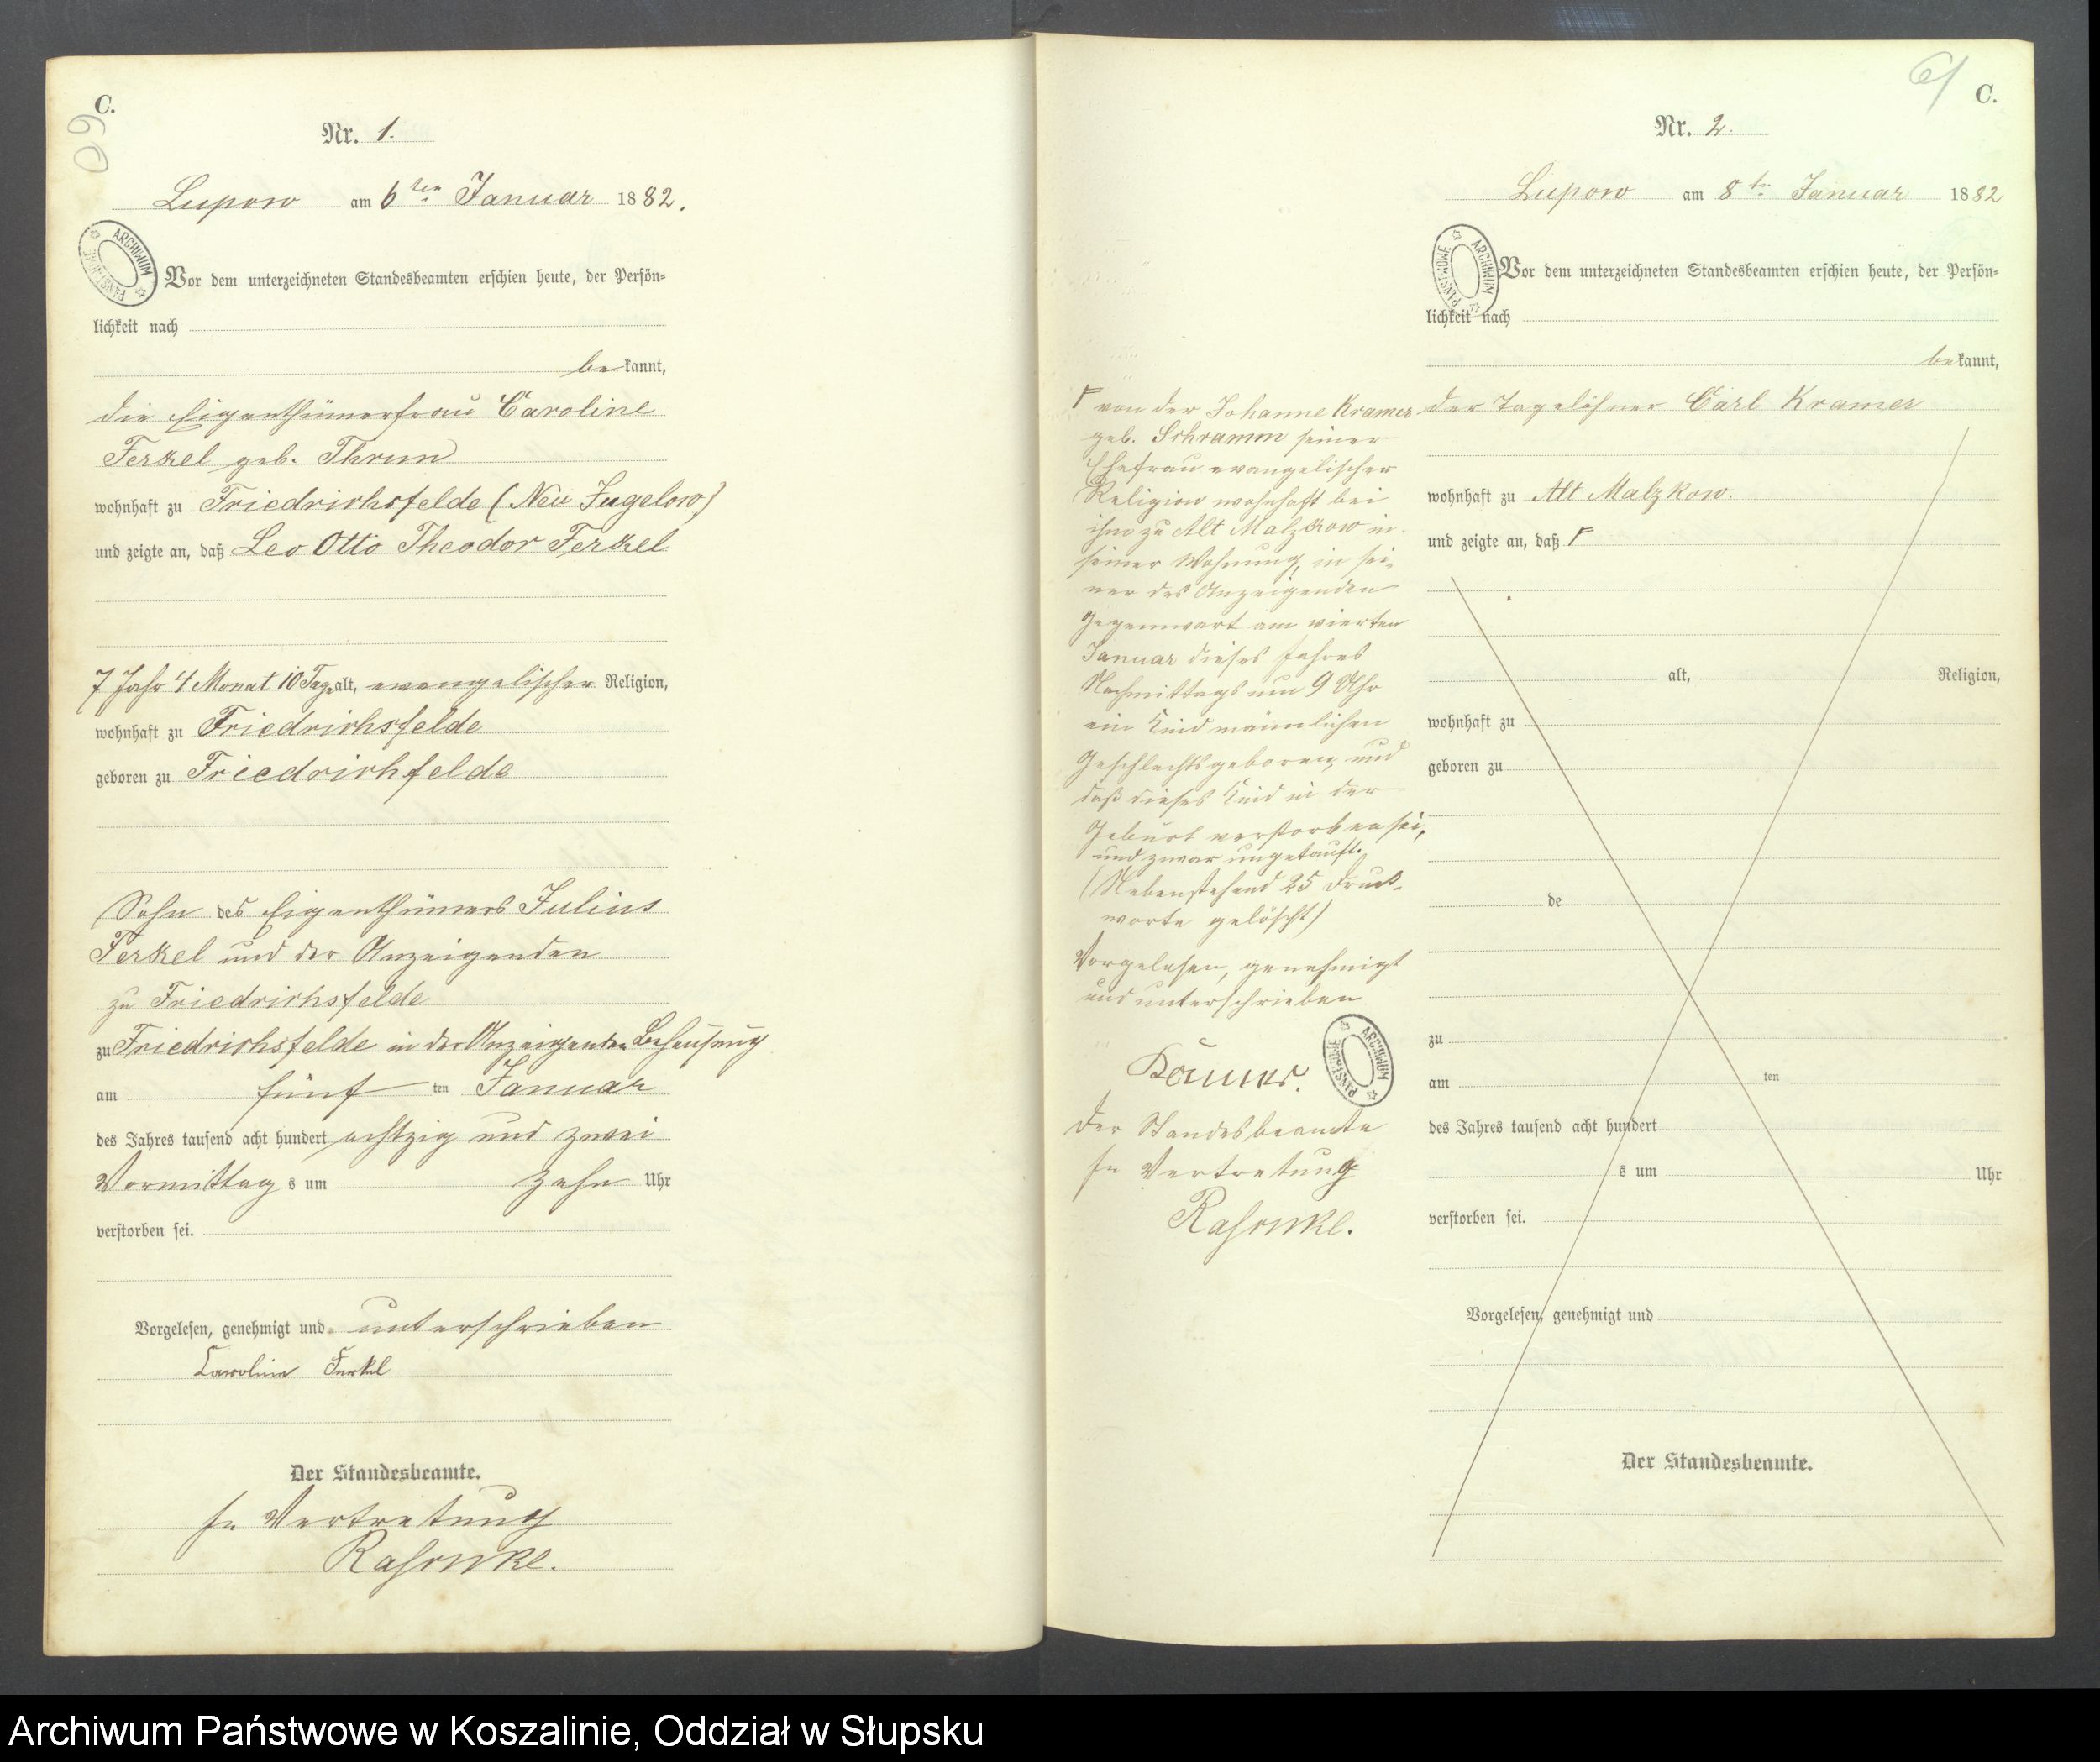 C.
60
Nr. 1.
Lupow am 6ten Januar 1882.
ARCHIWUM PAŃSTWOWE
Vor dem unterzeichneten Standesbeamten erschien heute, der Persön-
lichkeit nach
bekannt,
die Eigenthümerfrau Caroline
Ferkel geb. Thrun
wohnhaft zu Friedrichsfelde (Neu Jugelow)
und zeigte an, daß Leo Otto Theodor Ferkel
7 Jahr 4 Monat 10 Tage alt, evangelischer Religion,
wohnhaft zu Friedrichsfelde
geboren zu Friedrichfelde
Sohn des Eigenthümers Julius
Ferkel und der Anzeigenden
zu Friedrichsfelde
zu Friedrichsfelde in der Anzeigenden Behausung
am fünf ten Januar
des Jahres tausend acht hundert achtzig und zwei
Vormittag s um zehn Uhr
verstorben sei.
Vorgelesen, genehmigt und unterschrieben
Caroline Ferkel
Der Standesbeamte.
In Vertretung
61
C.
Nr. 2.
Lupow am 8ten Januar 1882
ARCHIWUM PAŃSTWOWE
Vor dem unterzeichneten Standesbeamten erschien heute, der Persön-
lichkeit nach
bekannt,
der Tagelöhner Carl Kramer
wohnhaft zu Alt Malzkow.
und zeigte an, daß
alt, Religion,
wohnhaft zu
geboren zu
de
zu
am ten
des Jahres tausend acht hundert
s um Uhr
verstorben sei.
Vorgelesen, genehmigt und
Der Standesbeamte.
von der Johanne Kramer
geb. Schramm seiner
Ehefrau evangelischer
Religion wohnhaft bei
ihm zu Alt Malzkow in
seiner Wohnung, in sei-
ner des Anzeigenden
Gegenwart am vierten
Januar dieses Jahres
Nachmittags um 9 Uhr
ein Kind männlichen
Geschlechts geboren, und
daß dieses Kind in der
Geburt verstorben sei,
und zwar ungetauft.
(Nebenstehend 25 Druck-
worte gelöscht)
Vorgelesen, genehmigt
und unterschrieben
ARCHIWUM PAŃSTWOWE
Der Standesbeamte
In Vertretung
Archiwum Państwowe w Koszalinie, Oddział w Słupsku